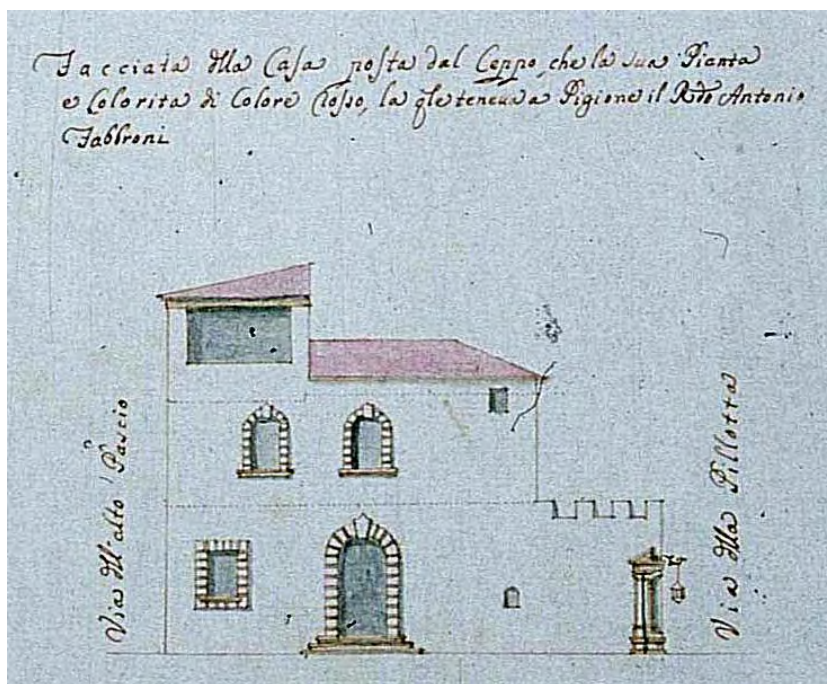 Facciata dlla Casa posta dal Ceppo, che la sua Pianta
e Colorita di Colore Rosso, la qle teneva a Pigione il Rdo Antonio
Fabbroni
Via dll'alto Pascio
Via dlla Pillotta